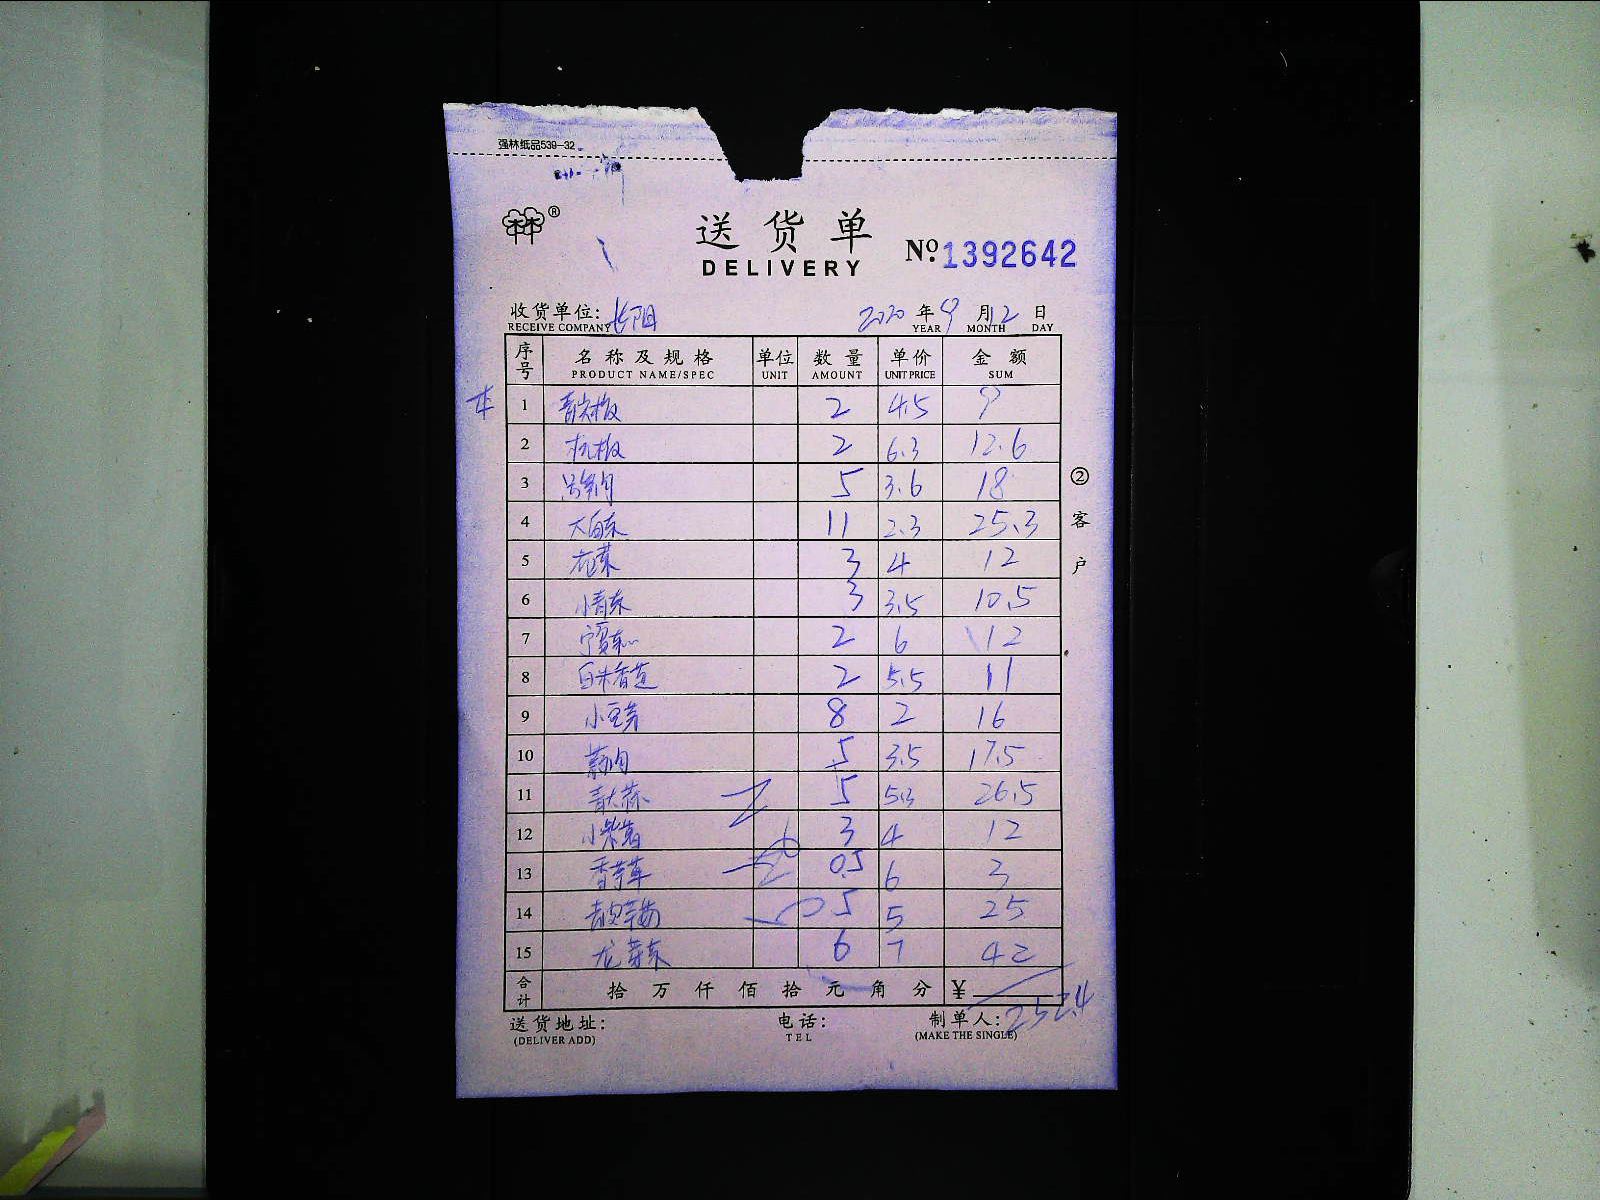 强林纸品539-32
®
送货单
DELIVERY
No.1392642
收货单位: 长阳
RECEIVE COMPANY
2020 年 9 月 12 日
YEAR MONTH DAY
序号 名称及规格 单位 数量 单价 金额
PRODUCT NAME/SPEC UNIT AMOUNT UNIT PRICE SUM
1 2 4.5 9
2 杭椒 2 6.3 12.6
3 5 3.6 18
4 大白菜 11 2.3 25.3
5 花菜 3 4 12
6 小青菜 3 3.5 10.5
7 2 6 12
8 2 5.5 11
9 小豆芽 8 2 16
10 5 3.5 17.5
11 青大蒜 5 5.3 26.5
12 3 4 12
13 0.5 6 3
14 5 5 25
15 龙芽菜 6 7 42
合计 拾 万 仟 佰 拾 元 角 分 ¥ 252.4
② 客户
送货地址: 电话: 制单人:
(DELIVER ADD) TEL (MAKE THE SINGLE)